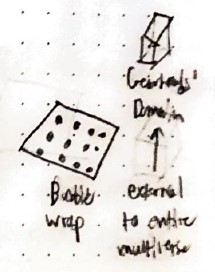 Domain
Bubble
wrap
external
to entire
multiverse